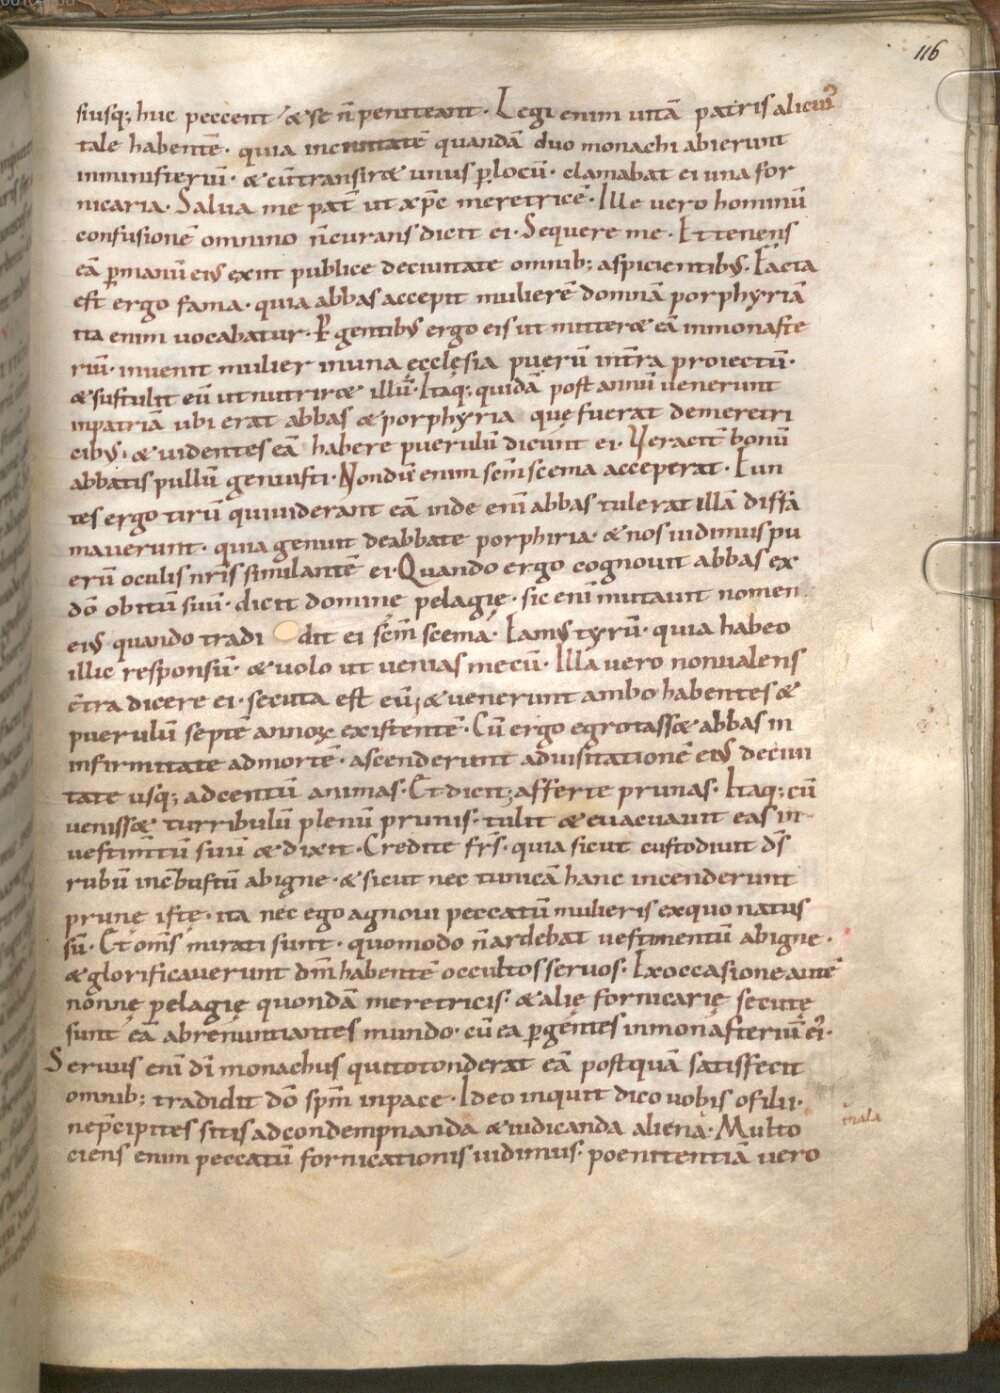 116
siusq; huc peccent & se n̄ peniteant. Legi enim uitā patris alicui᾽
tale habentē. quia inciuitatē quandā duo monachi abierunt
inministeriū. & cū transir& unus p̱ locū. clamabat ei una for
nicaria. Salua me pat̄ ut xp̄c meretricē. Ille vero hominū
confusionē omnino n̄ curans dicit ei. Sequere me. Et tenens
eā p̱ manū ei᾽ exiit publice deciuitate omnib; aspicientib᾽. Facta
est ergo fama. quia abbas accepit mulierē domnā porphyriā
ita enim uocabatur. P̱gentib᾽ ergo eis ut mitter& eā inmonaste
riū. inuenit mulier inuna ęcclęsia puerū int̄ra proiectū.
& sustulit eū ut nutrir& illū. Itaq; quidā post annū uenerunt
inpatriā ubi erat abbas & porphyria quę fuerat demeretri
cib᾽. & uidentes eā habere puerulū dicunt ei. bonū
abbatis pullū genuisti. Nondū enim sc̄m scema acceperat. Eun
tes ergo tirū quiuiderant eā inde eni᷎ abbas tulerat illā diffa
mauerunt. quia genuit deabbate porphiria. & nos uidimus pu
erū oculis nr̄is similantē ei. Quando ergo cognouit abbas ex
dō obitū suū. dicit domine pelagię. sic eni᷎ mutauit nomen
ei᾽ quando tradi dit ei sc̄m scema. Eam᾽ tyrū. quia habeo
illic responsū. & uolo ut uenias mecū. Illa vero nonualens
c̄tra dicere ei. secuta est eū; & uenerunt ambo habentes &
puerulū septē annoꝝ existentē. Cū ergo egrotass& abbas in
infirmitate admortē. ascenderunt aduisitationē ei᾽ deciui
tate usq; adcentū animas. Et dicit; afferte prunas. Itaq; cū
veniss& turribulū plenū prunis. tulit & euacuauit eas in
vestim̄tū suū & dixit. Credite frs̄. quia sicut custodiuit d̄s
rubū incb̄ustū abigne. & sicut nec tunicā hanc incenderunt
prunę istę. ita nec ego agnoui peccatū mulieris exquo natus
sū. Et oms̄ mirati sunt. quomodo n̄ ardebat vestimentū abigne.
& glorificauerunt dm̄ habentē occultos seruos. Exoccasione autē
nonnę pelagię quondā meretricis. & alię fornicarię secutę
sunt eā abrenuntiantes mundo. cū ea p̱gentes inmonasteriū ei᾽.
Seruus eni᷎ dī monachus quitotonderat eā postquā satisfecit
omnib; tradidit dō sp̄m inpace. Ideo inquit dico uobis o filii.
nep̄cipites sitis adcondempnanda & iudicanda aliena. Multo
ciens enim peccatū fornicationis uidimus. poenitentiā vero
mala